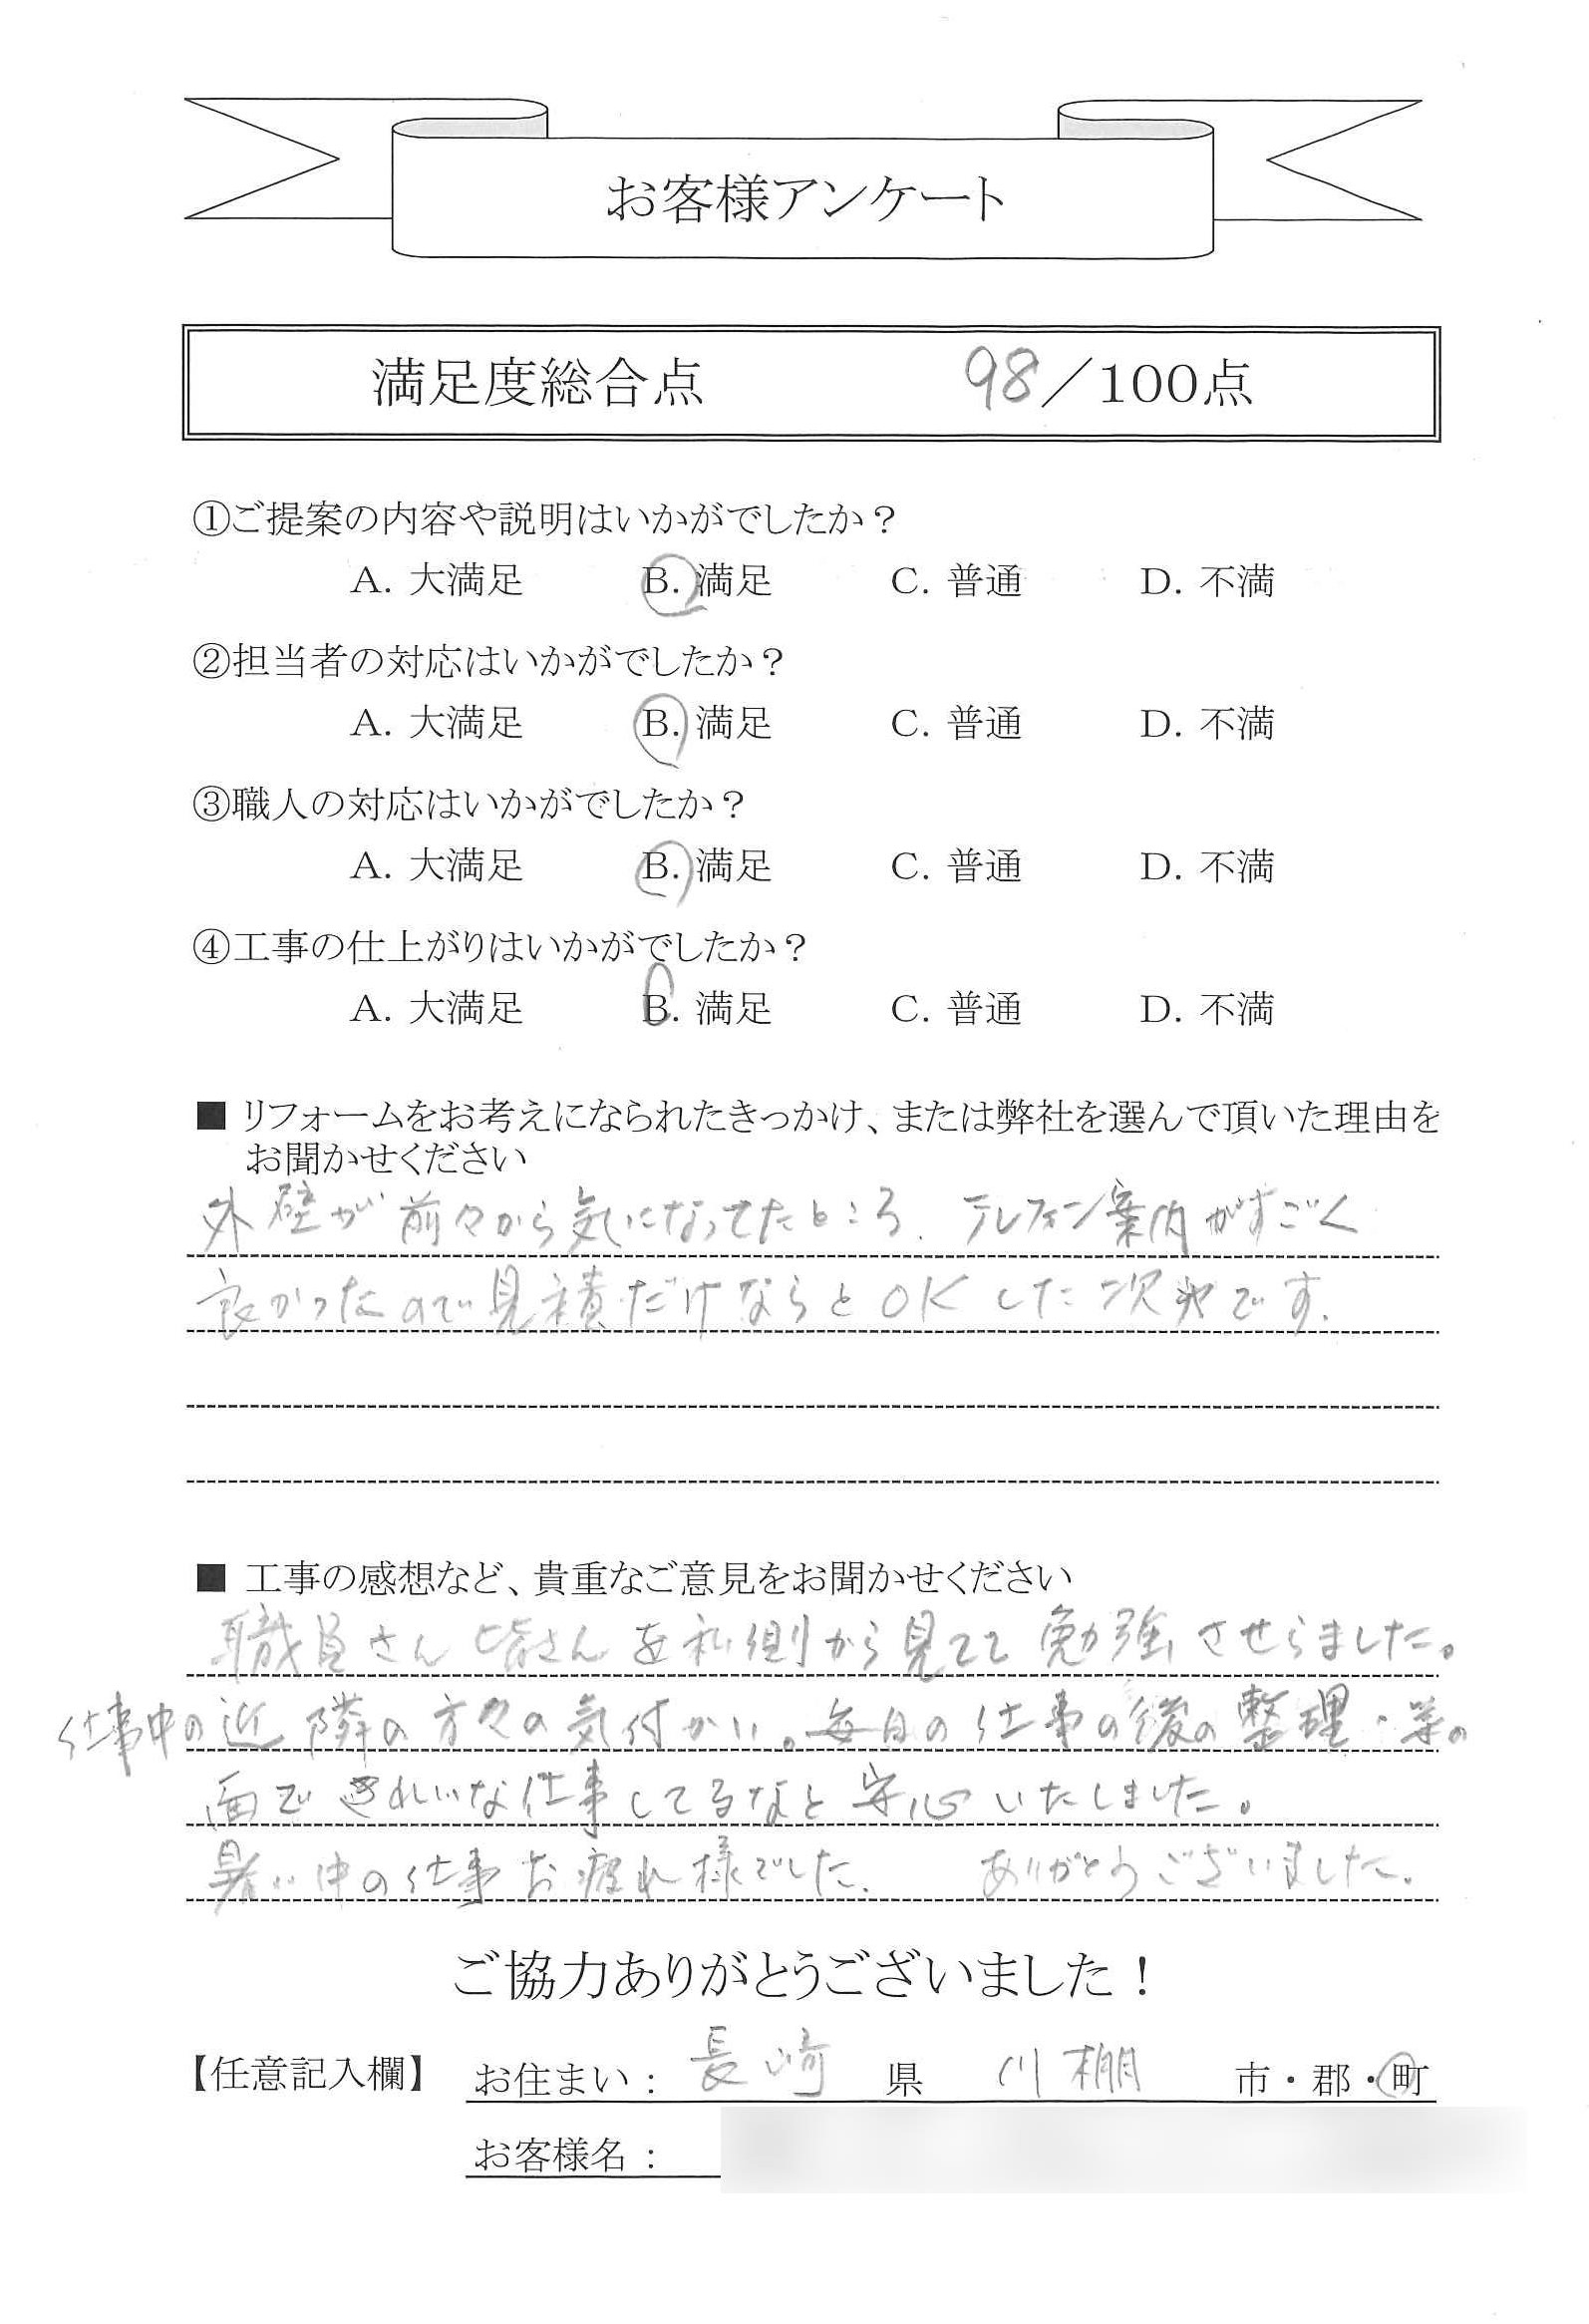 お客様アンケート
満足度総合点 98／100点
①ご提案の内容や説明はいかがでしたか？
A. 大満足 B. 満足 C. 普通 D. 不満
②担当者の対応はいかがでしたか？
A. 大満足 B. 満足 C. 普通 D. 不満
③職人の対応はいかがでしたか？
A. 大満足 B. 満足 C. 普通 D. 不満
④工事の仕上がりはいかがでしたか？
A. 大満足 B. 満足 C. 普通 D. 不満
■ リフォームをお考えになられたきっかけ、または弊社を選んで頂いた理由を
お聞かせください
外壁が前々から気になってたところ、テレフォン案内がすごく
良かったので見積だけならとOKした次第です.
■ 工事の感想など、貴重なご意見をお聞かせください
職員さん皆さんを私側から見てて勉強させらました。
仕事中の近隣の方々の気付かい。毎日の仕事の後の整理・等の
面できれいな仕事してるなと安心いたしました。
暑い中の仕事お疲れ様でした. ありがとうございました.
ご協力ありがとうございました！
【任意記入欄】 お住まい： 長崎 県 川棚 市・郡・町
お客様名：